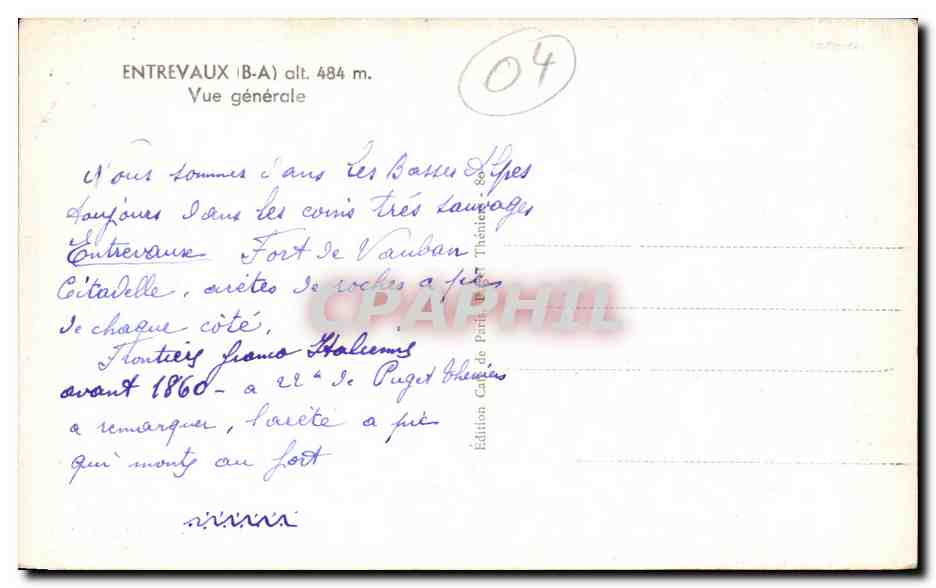 ENTREVAUX (B-A) alt. 484 m.
Vue générale
04
Nous sommes dans les Basses Alpes
toujours dans les coins très sauvages
Entrevaux Fort de Vauban
Citadelle, arêtes de roches a pic
de chaque côté.
Frontière franco Italienne
avant 1860 - a 22 de Puget Theniers
a remarquer, l'arête a pic
qui monte au fort
Édition Café de Paris, Thénier 80
CPAPHIL